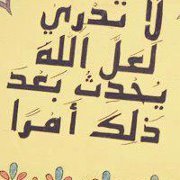 لا تدري
لعل الله
يحدث بعد
ذلك أمرًا